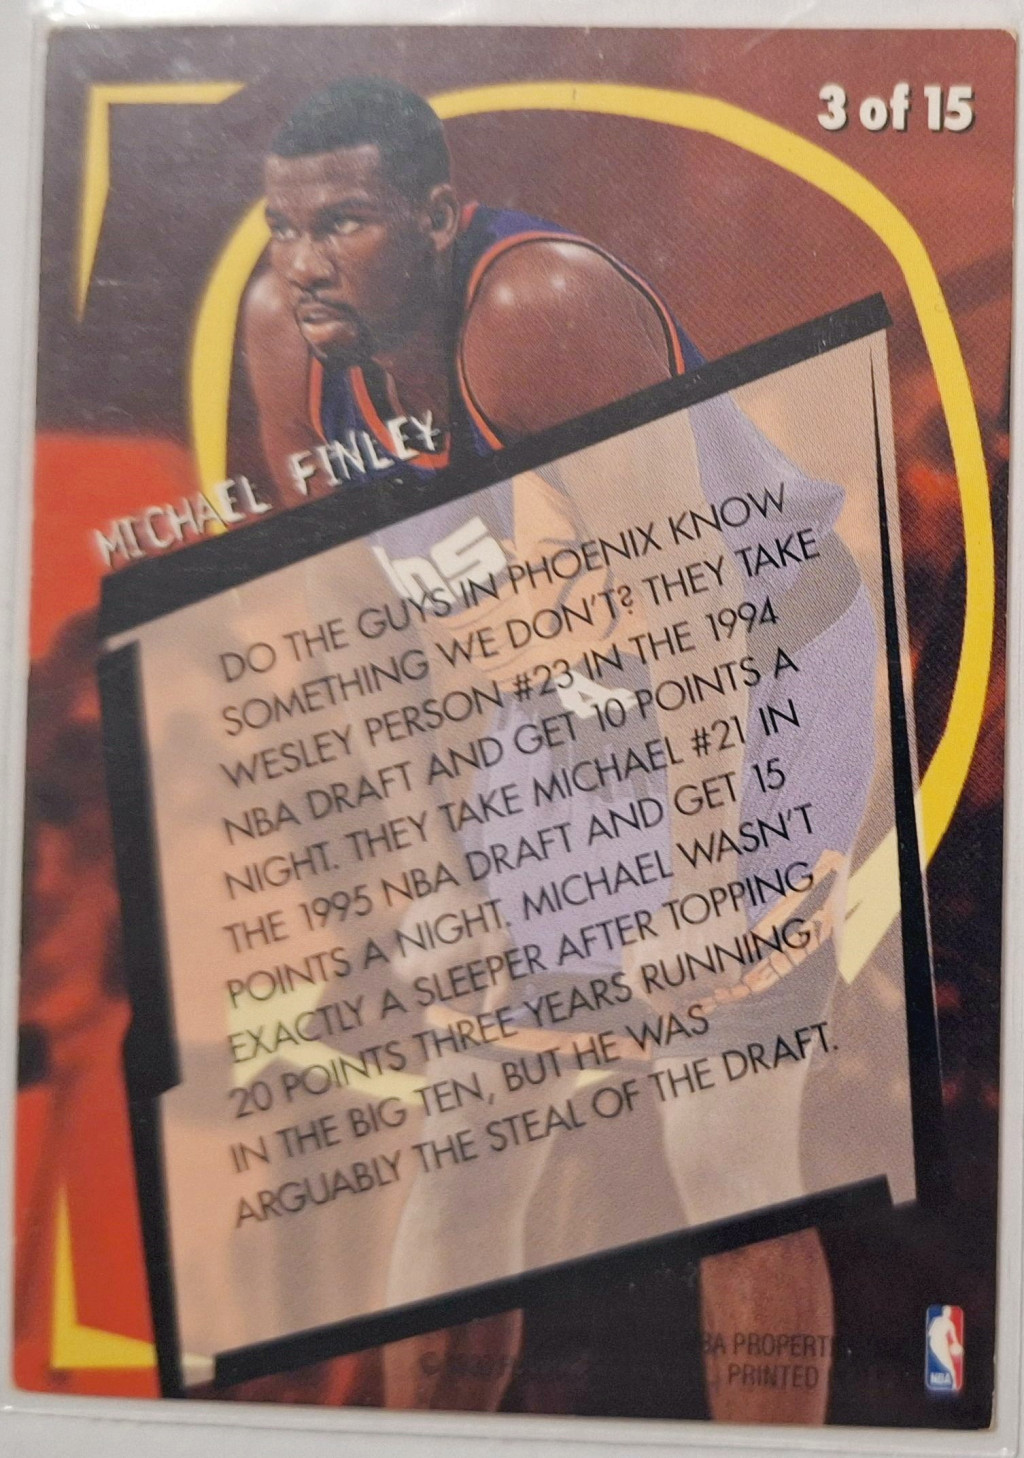 3 of 15
MICHAEL FINLEY
DO THE GUYS IN PHOENIX KNOW
SOMETHING WE DON'T? THEY TAKE
WESLEY PERSON #23 IN THE 1994
NBA DRAFT AND GET 10 POINTS A
NIGHT. THEY TAKE MICHAEL #21 IN
THE 1995 NBA DRAFT AND GET 15
POINTS A NIGHT. MICHAEL WASN'T
EXACTLY A SLEEPER AFTER TOPPING
20 POINTS THREE YEARS RUNNING
IN THE BIG TEN, BUT HE WAS
ARGUABLY THE STEAL OF THE DRAFT.
PRINTED
NBA